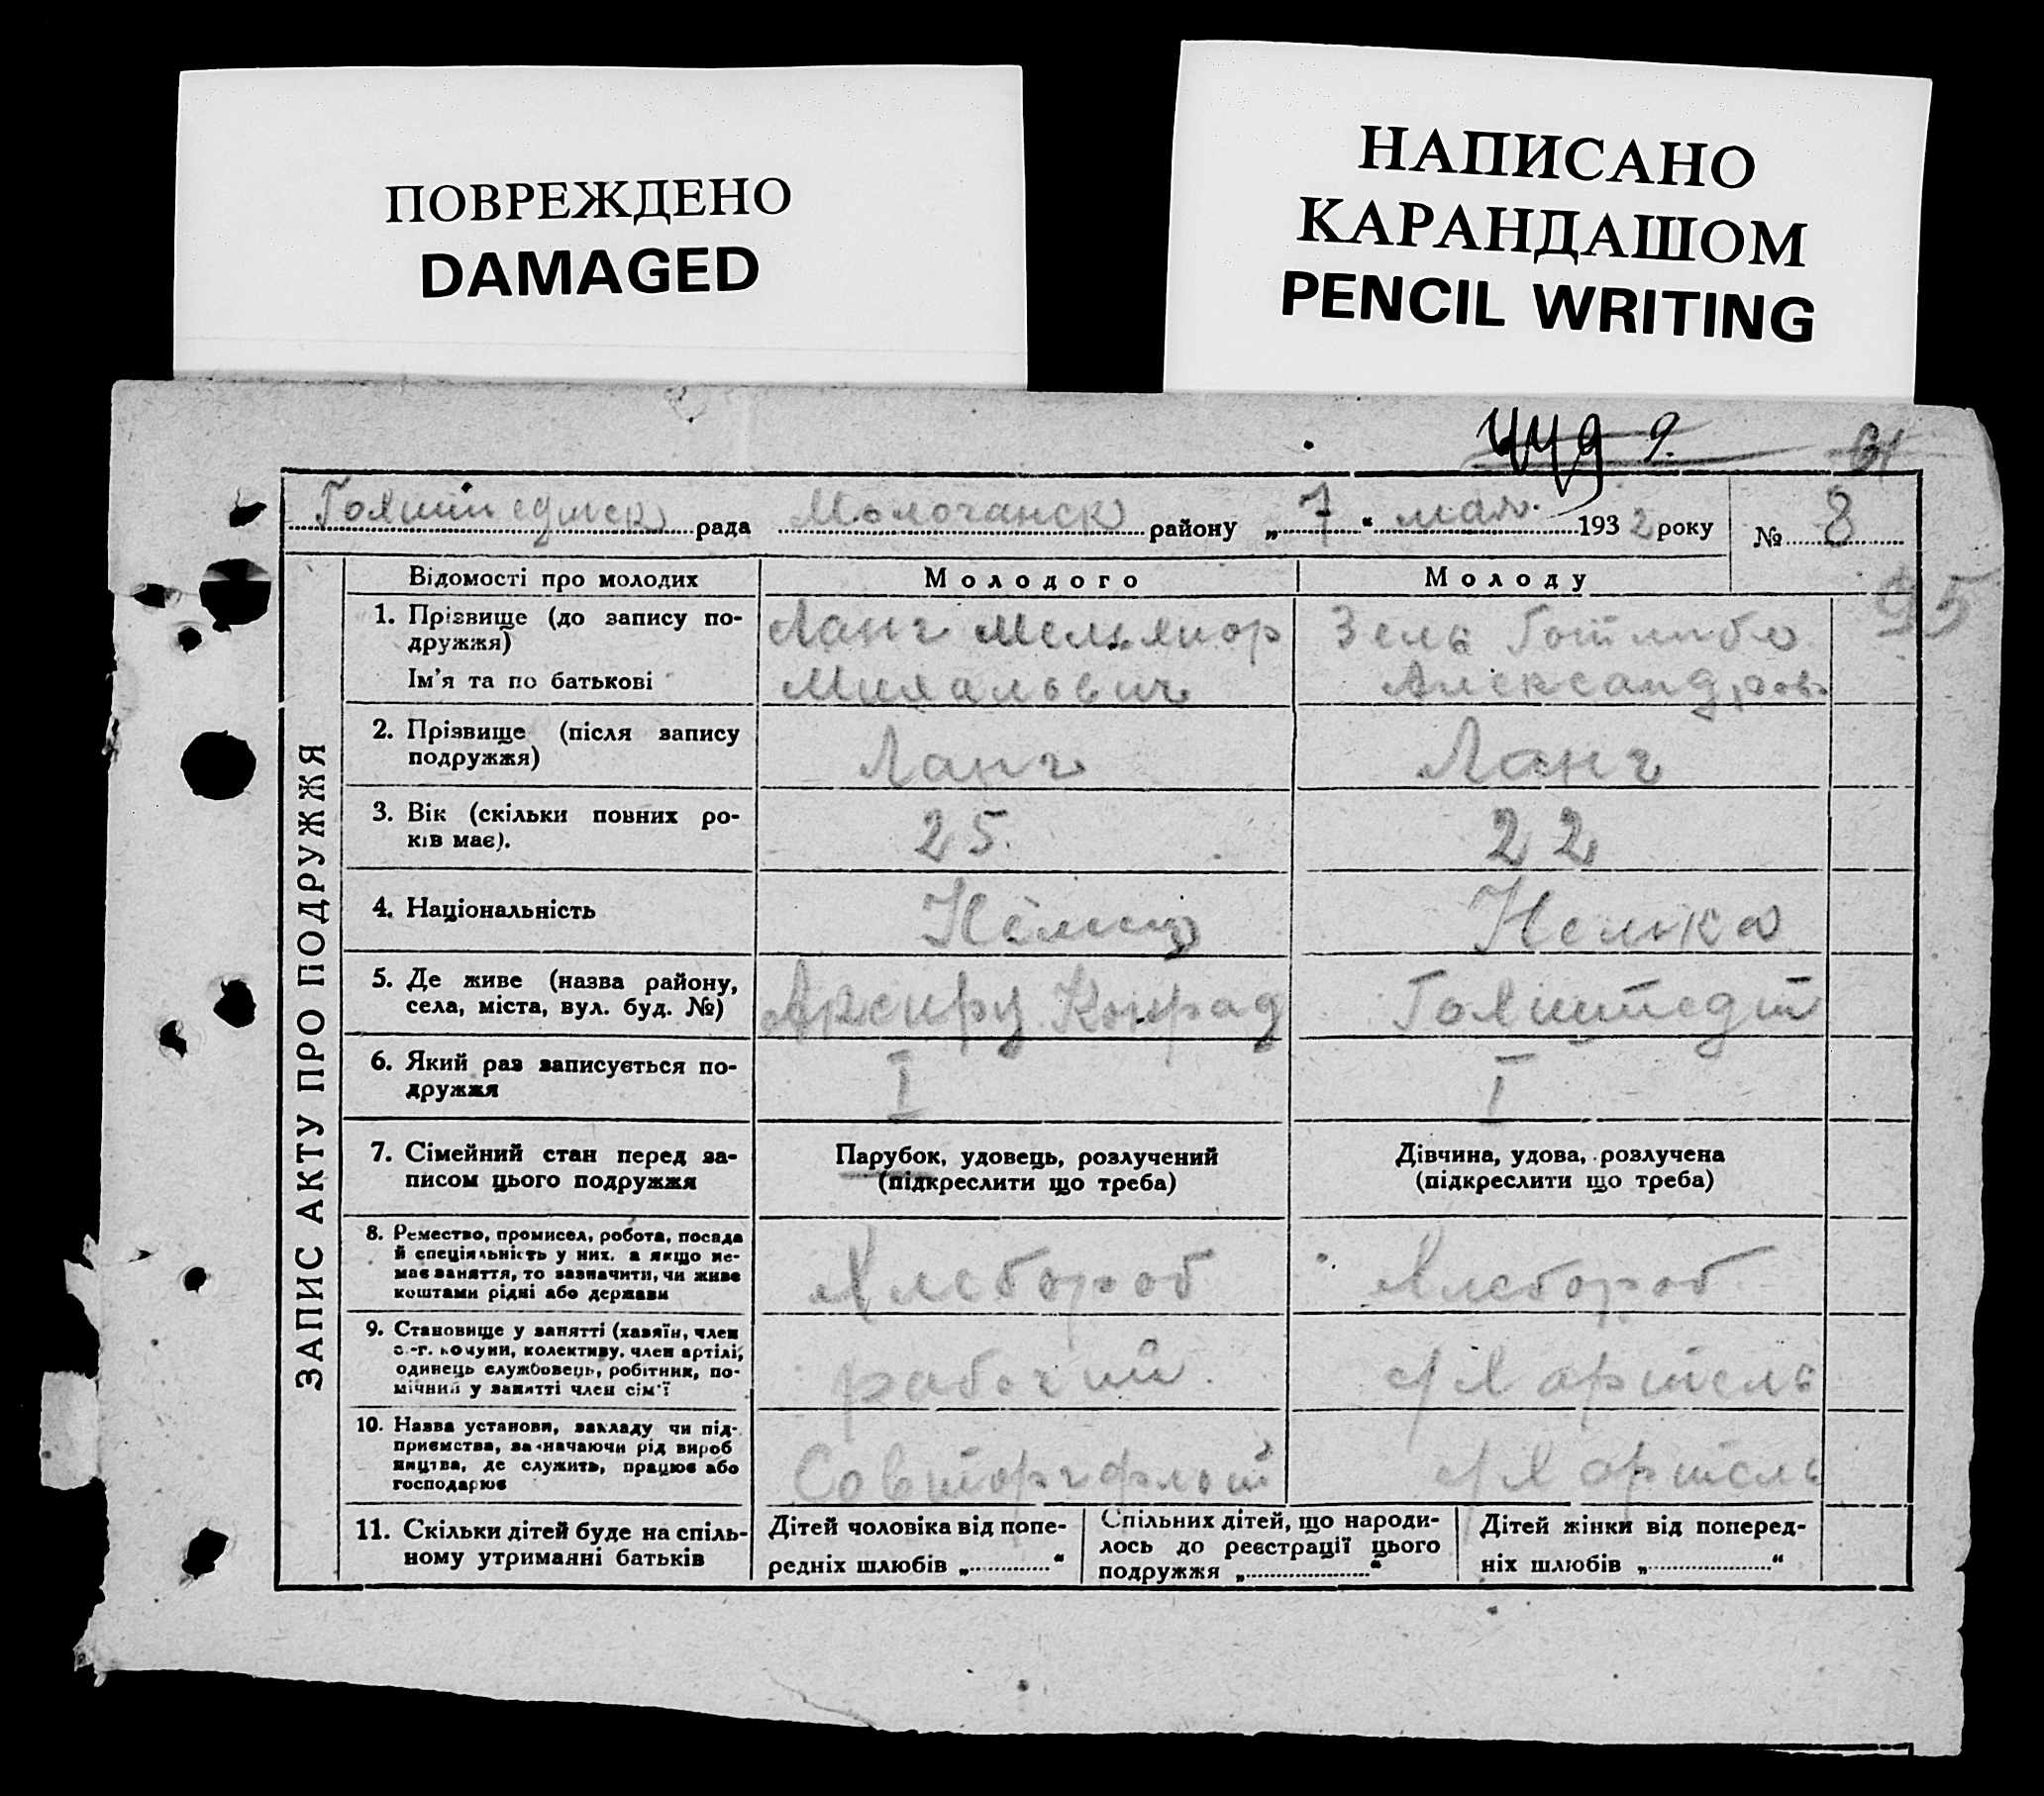 ПОВРЕЖДЕНО
DAMAGED
НАПИСАНО
КАРАНДАШОМ
PENCIL WRITING
рада Молочанск району „7“ мая 1932 року № 8
95
ЗАПИС АКТУ ПРО ПОДРУЖЖЯ
Відомості про молодих Молодого Молоду
1. Прізвище (до запису по-
дружжя)
Ім'я та по батькові
Ланг Мельхиор
Михальович
Зель Готлибо
Александров
2. Прізвище (після запису
подружжя)
Ланг Ланг
3. Вік (скільки повних ро-
ків має).
25. 22
4. Національність Немец Немка
5. Де живе (назва району,
села, міста, вул. буд. №)
Конрад
Гохштедт
6. Який раз записується по-
дружжя
I I
7. Сімейний стан перед за-
писом цього подружжя
Парубок, удовець, розлучений
(підкреслити що треба)
Дівчина, удова, розлучена
(підкреслити що треба)
8. Ремество, промисел, робота, посада
й спеціяльність у них, а якщо не-
має заняття, то зазначити, чи живе
коштами рідні або держави
Хлебороб Хлебороб
9. Становище у занятті (хазяїн, член
с.-г. комуни, колективу, член артілі,
одинець службовець, робітник, по-
мічний у занятті член сім'ї
рабочий. с/х артель
10. Назва установи, закладу чи під-
приємства, зазначаючи рід вироб
ництва, де служить, працює або
господарює
Совторгфлот с/х артель
11. Скільки дітей буде на спіль-
ному утриманні батьків
Дітей чоловіка від попе-
редніх шлюбів „............“
Спільних дітей, що народи-
лось до реєстрації цього
подружжя „............“
Дітей жінки від поперед-
ніх шлюбів „............“